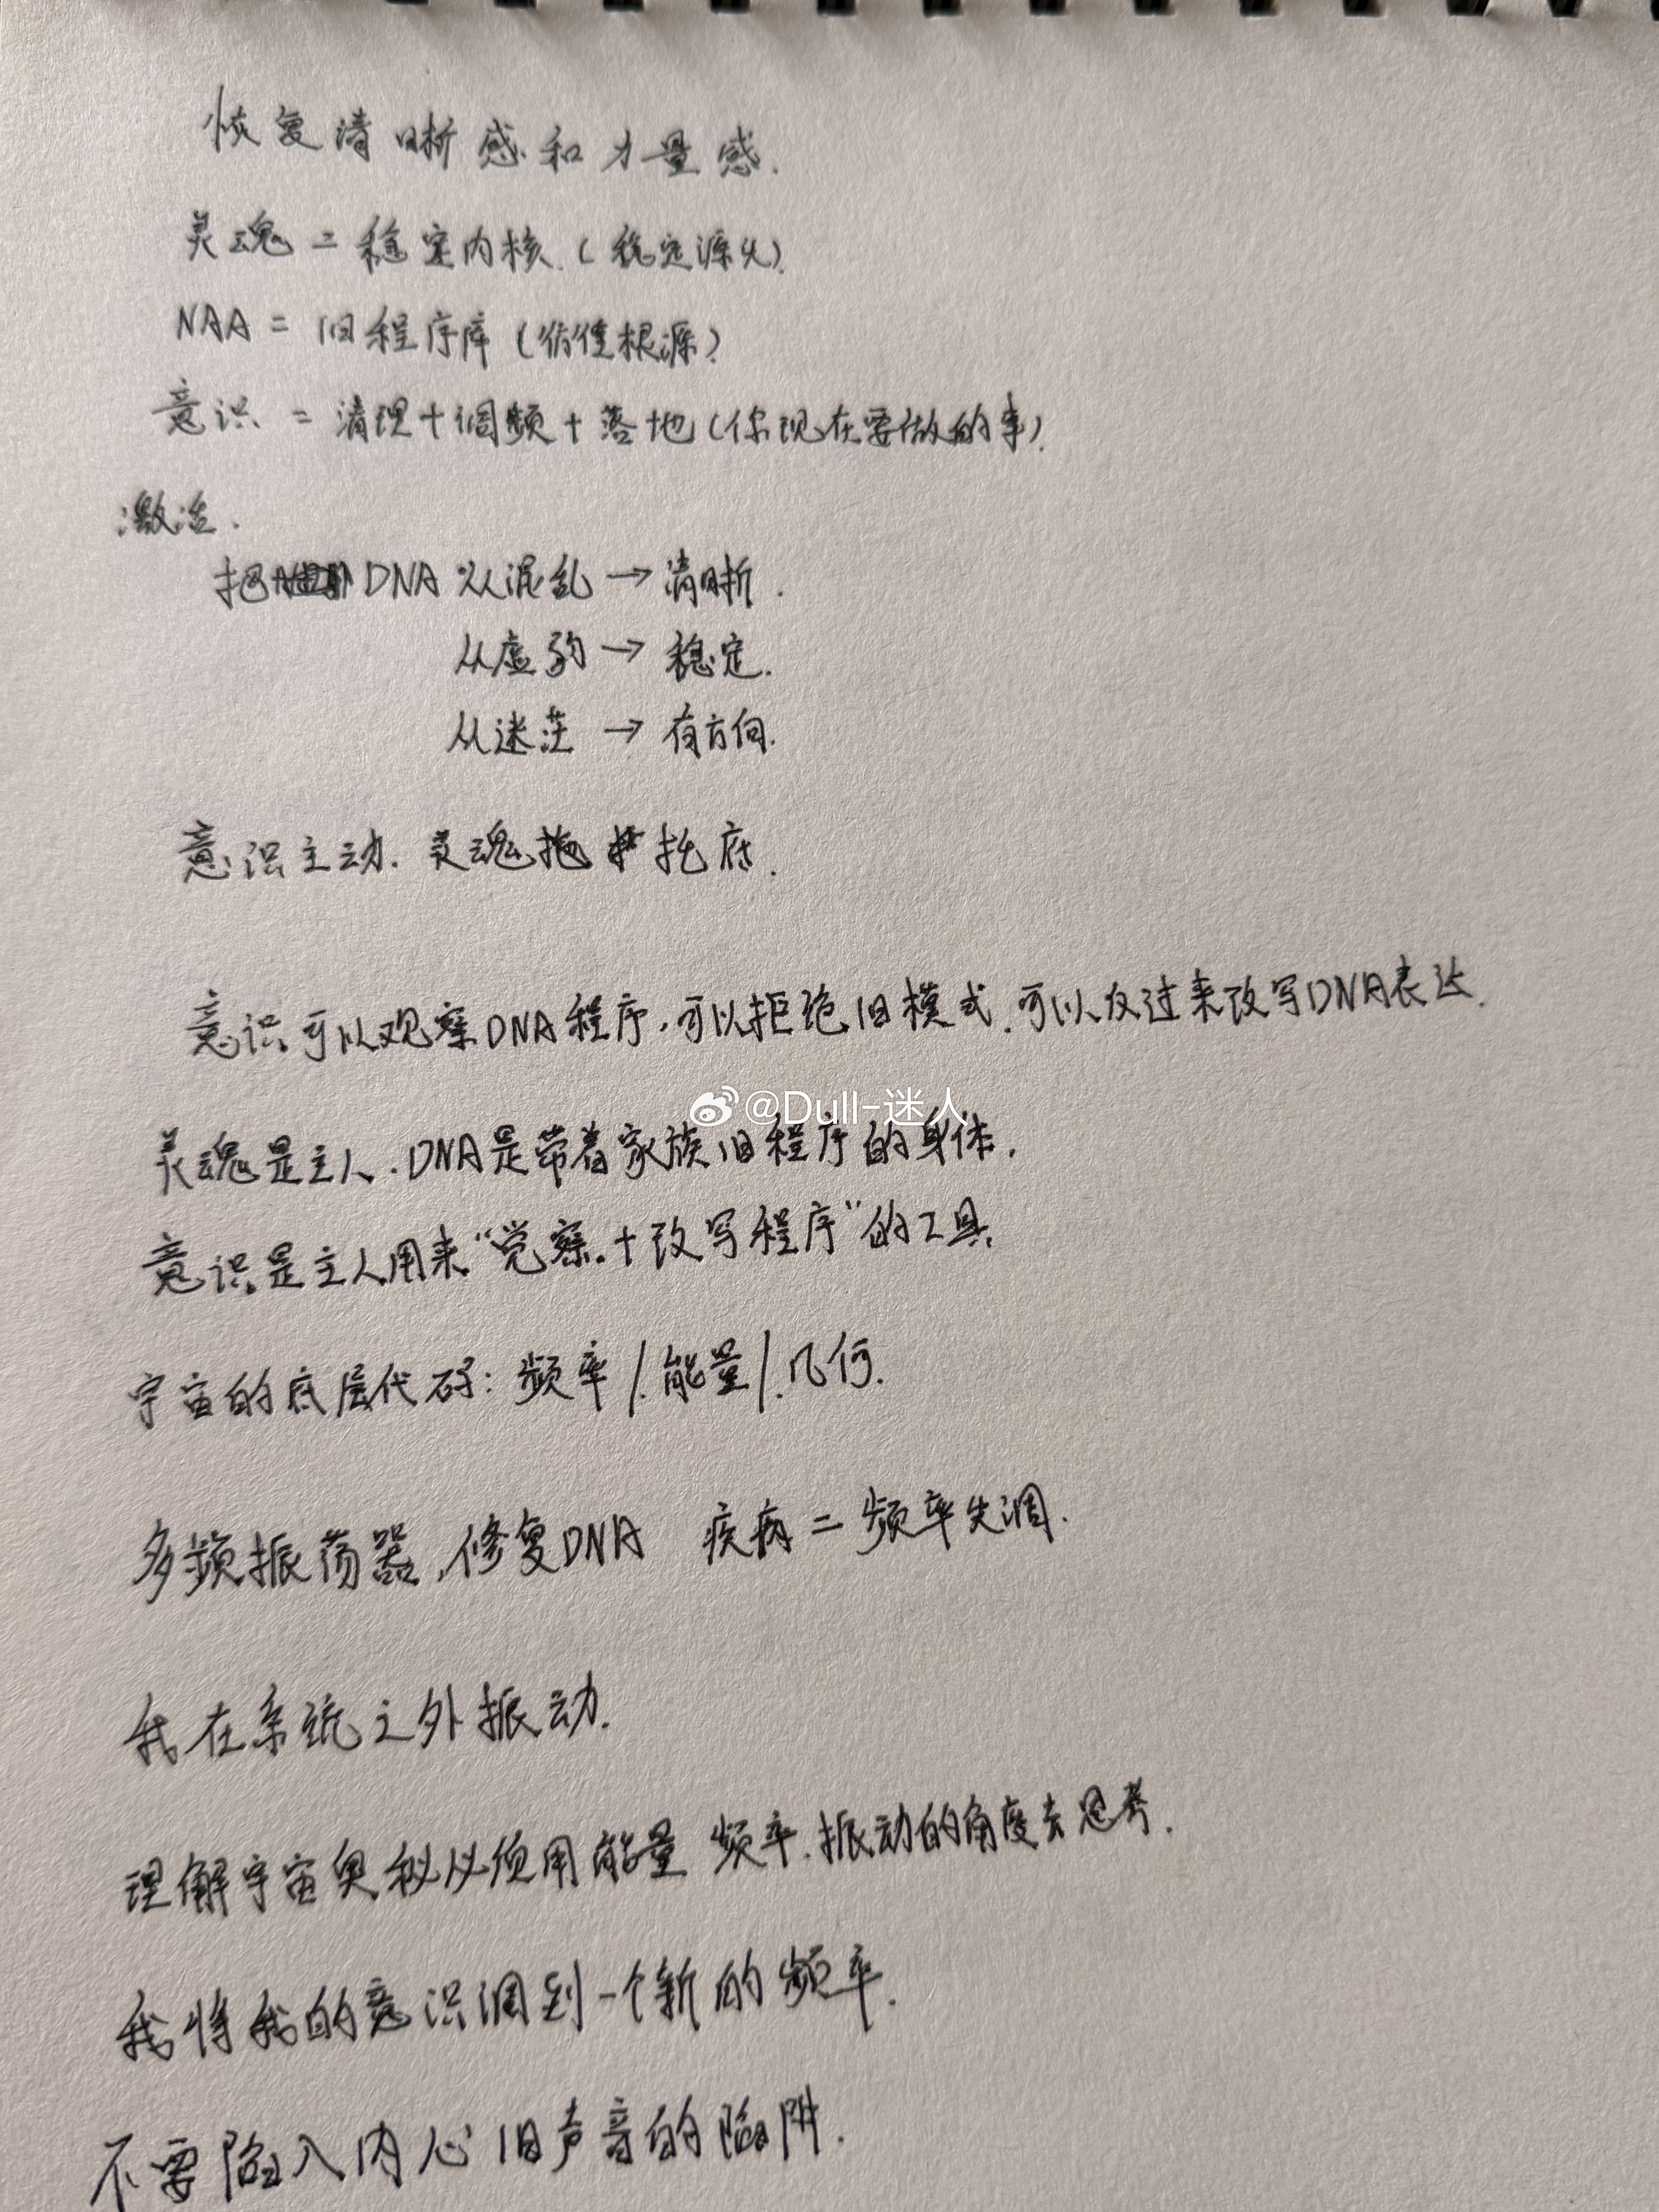 恢复清晰感和力量感.
灵魂=稳定内核.(稳定源头).
NAA=旧程序库(信念根源)
意识=清理+调频+落地(你现在要做的事).
激活.
把DNA 从混乱→清晰.
从虚弱→稳定.
从迷茫→有方向.
意识主动.灵魂托底.
意识可以观察DNA程序,可以拒绝旧模式.可以反过来改写DNA表达.
@Dull-迷人
灵魂是主人.DNA是带着家族旧程序的身体.
意识是主人用来“觉察.+改写程序”的工具
宇宙的底层代码:频率/.能量/.几何.
多频振荡器,修复DNA 疾病=频率失调.
我在系统之外振动.
理解宇宙奥秘必须用能量 频率.振动的角度去思考.
我将我的意识调到一个新的频率.
不要陷入内心旧声音的陷阱.